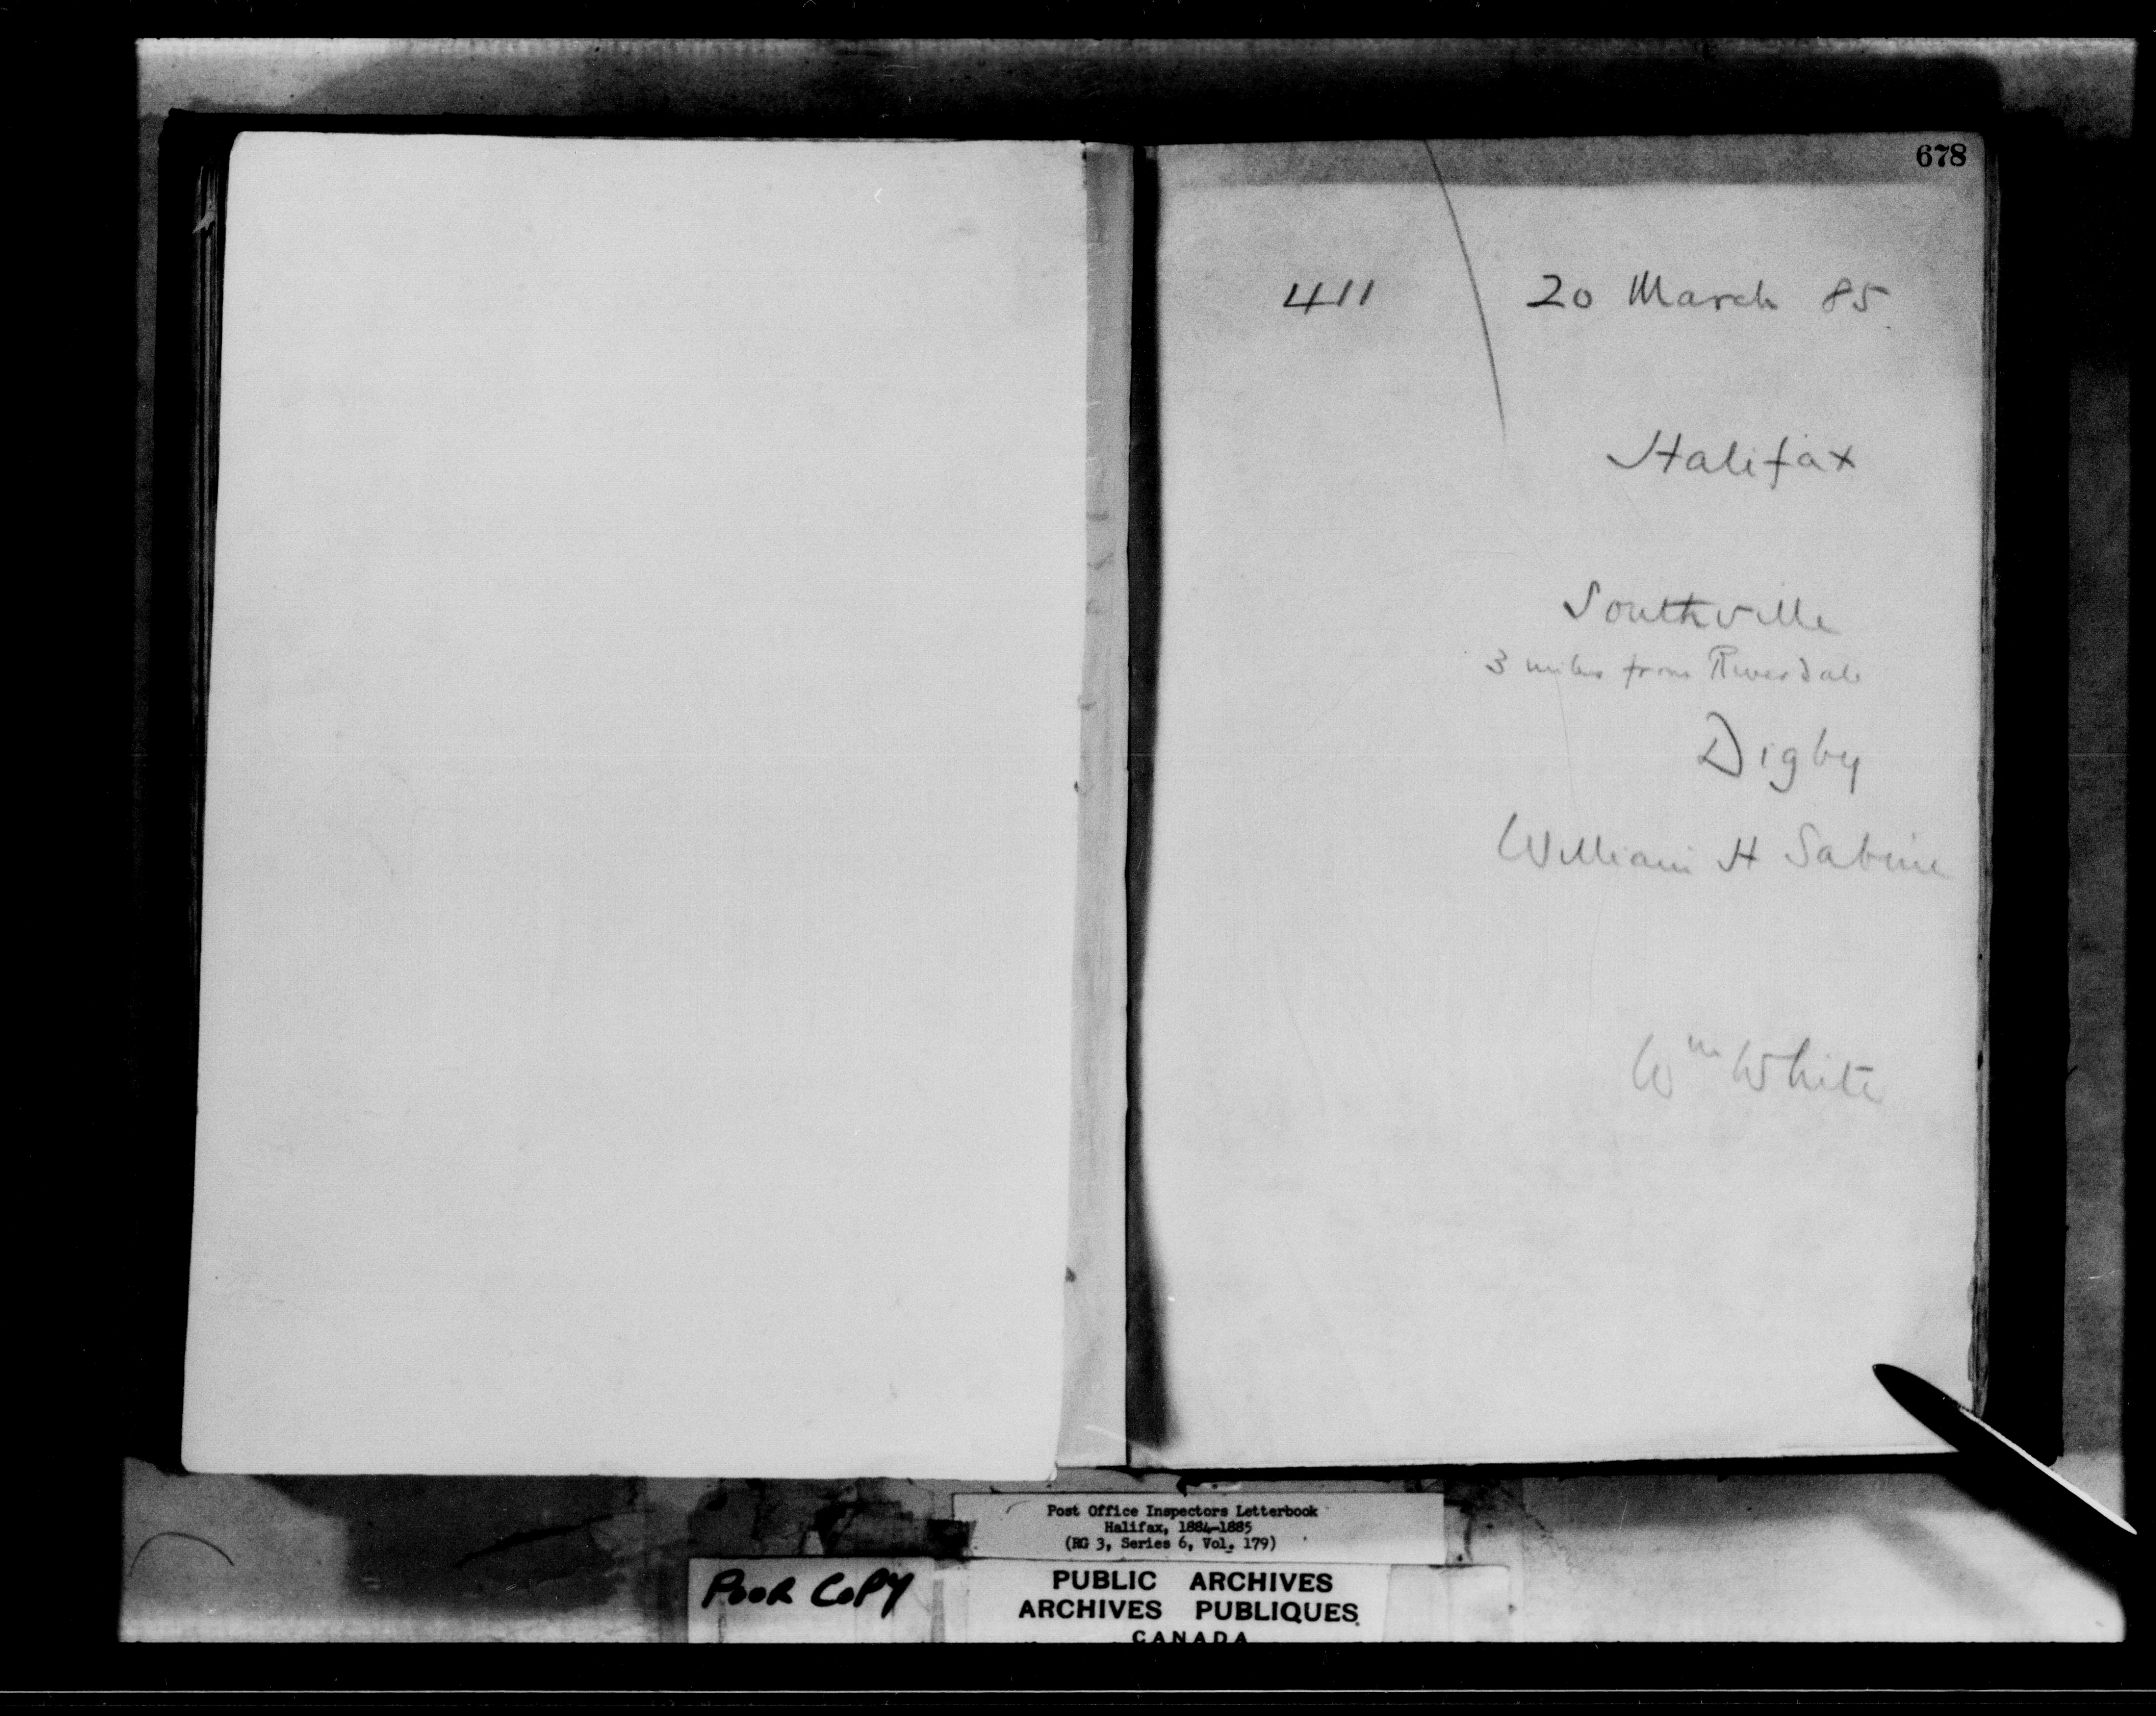 678
411 20 March 85.
Halifax
Southville
3 miles from Riverdale
Digby
William H Sabine
Wm White
Post Office Inspectors Letterbook
Halifax, 1884-1885
(RG 3, Series 6, Vol. 179)
POOR COPY
PUBLIC ARCHIVES
ARCHIVES PUBLIQUES
CANADA